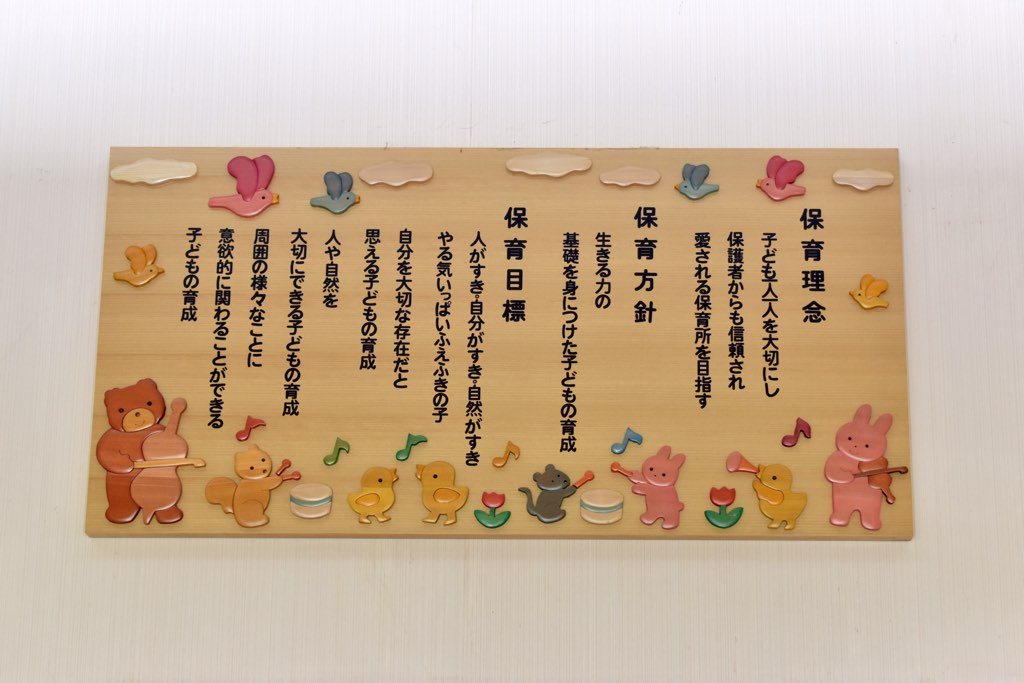 保育理念
子ども一人一人を大切にし
保護者からも信頼され
愛される保育所を目指す
保育方針
生きる力の
基礎を身につけた子どもの育成
保育目標
人がすき・自分がすき・自然がすき
やる気いっぱいふえふきの子
自分を大切な存在だと
思える子どもの育成
人や自然を
大切にできる子どもの育成
周囲の様々なことに
意欲的に関わることができる
子どもの育成